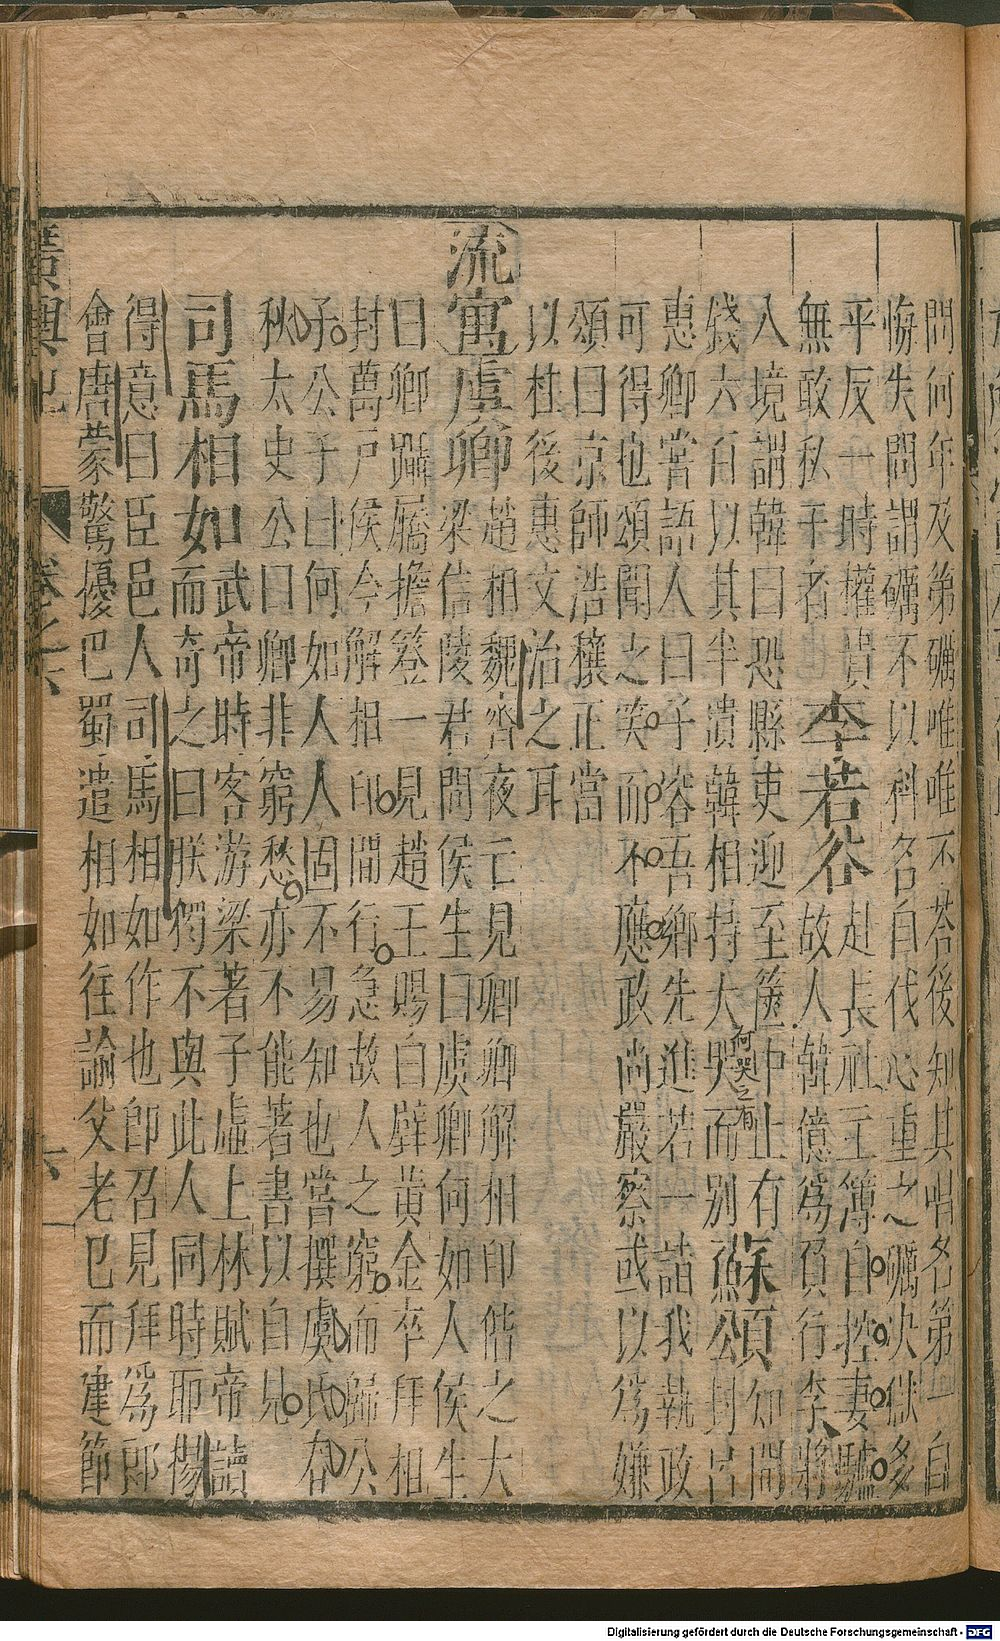 問何年及第礪唯唯不荅後知其唱名第一自
悔失問謂礪不以科名自伐心重之礪决獄多
平反一時權貴 李若谷赴長社主簿自控妻驢
無敢私干者 故人韓億爲負行李將
入境謂韓曰恐縣吏迎至篋中止有 蘇頌知開
錢六百以其半遺韓相持大哭而別 何哭之有 頌封呂
惠卿嘗語人曰子容吾鄉先進若一詣我執政
可得也頌聞之笑而不應政尚嚴察或以爲嫌
頌曰京師浩穰正當
以柱後惠文治之耳
流寓虞卿趙相魏齊夜亡見卿卿解相印偕之大
梁信陵君問侯生曰虞卿何如人侯生
曰卿躡屩擔簦一見趙王賜白璧黃金卒拜相
封萬戶侯今解相印間行急故人之窮而歸公
子公子曰何如人人固不易知也嘗撰虞氏春
秋太史公曰卿非窮愁亦不能著書以自見
司馬相如武帝時客游梁著子虛上林賦帝讀
而奇之曰朕獨不與此人同時耶楊
得意曰臣邑人司馬相如作也卽召見拜爲郎
會唐蒙驚擾巴蜀遣相如往諭父老已而建節
廣輿記
卷之六
六
Digitalisierung gefördert durch die Deutsche Forschungsgemeinschaft - DFG